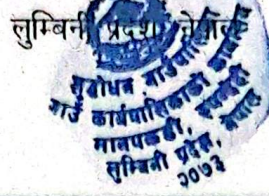 लुम्बिनी प्रदेश, नेपाल
शुद्धोधन गाउँपालिका
गाउँ कार्यपालिकाको कार्यालय
मानपकडी, रुपन्देही
लुम्बिनी प्रदेश, नेपाल
२०७३